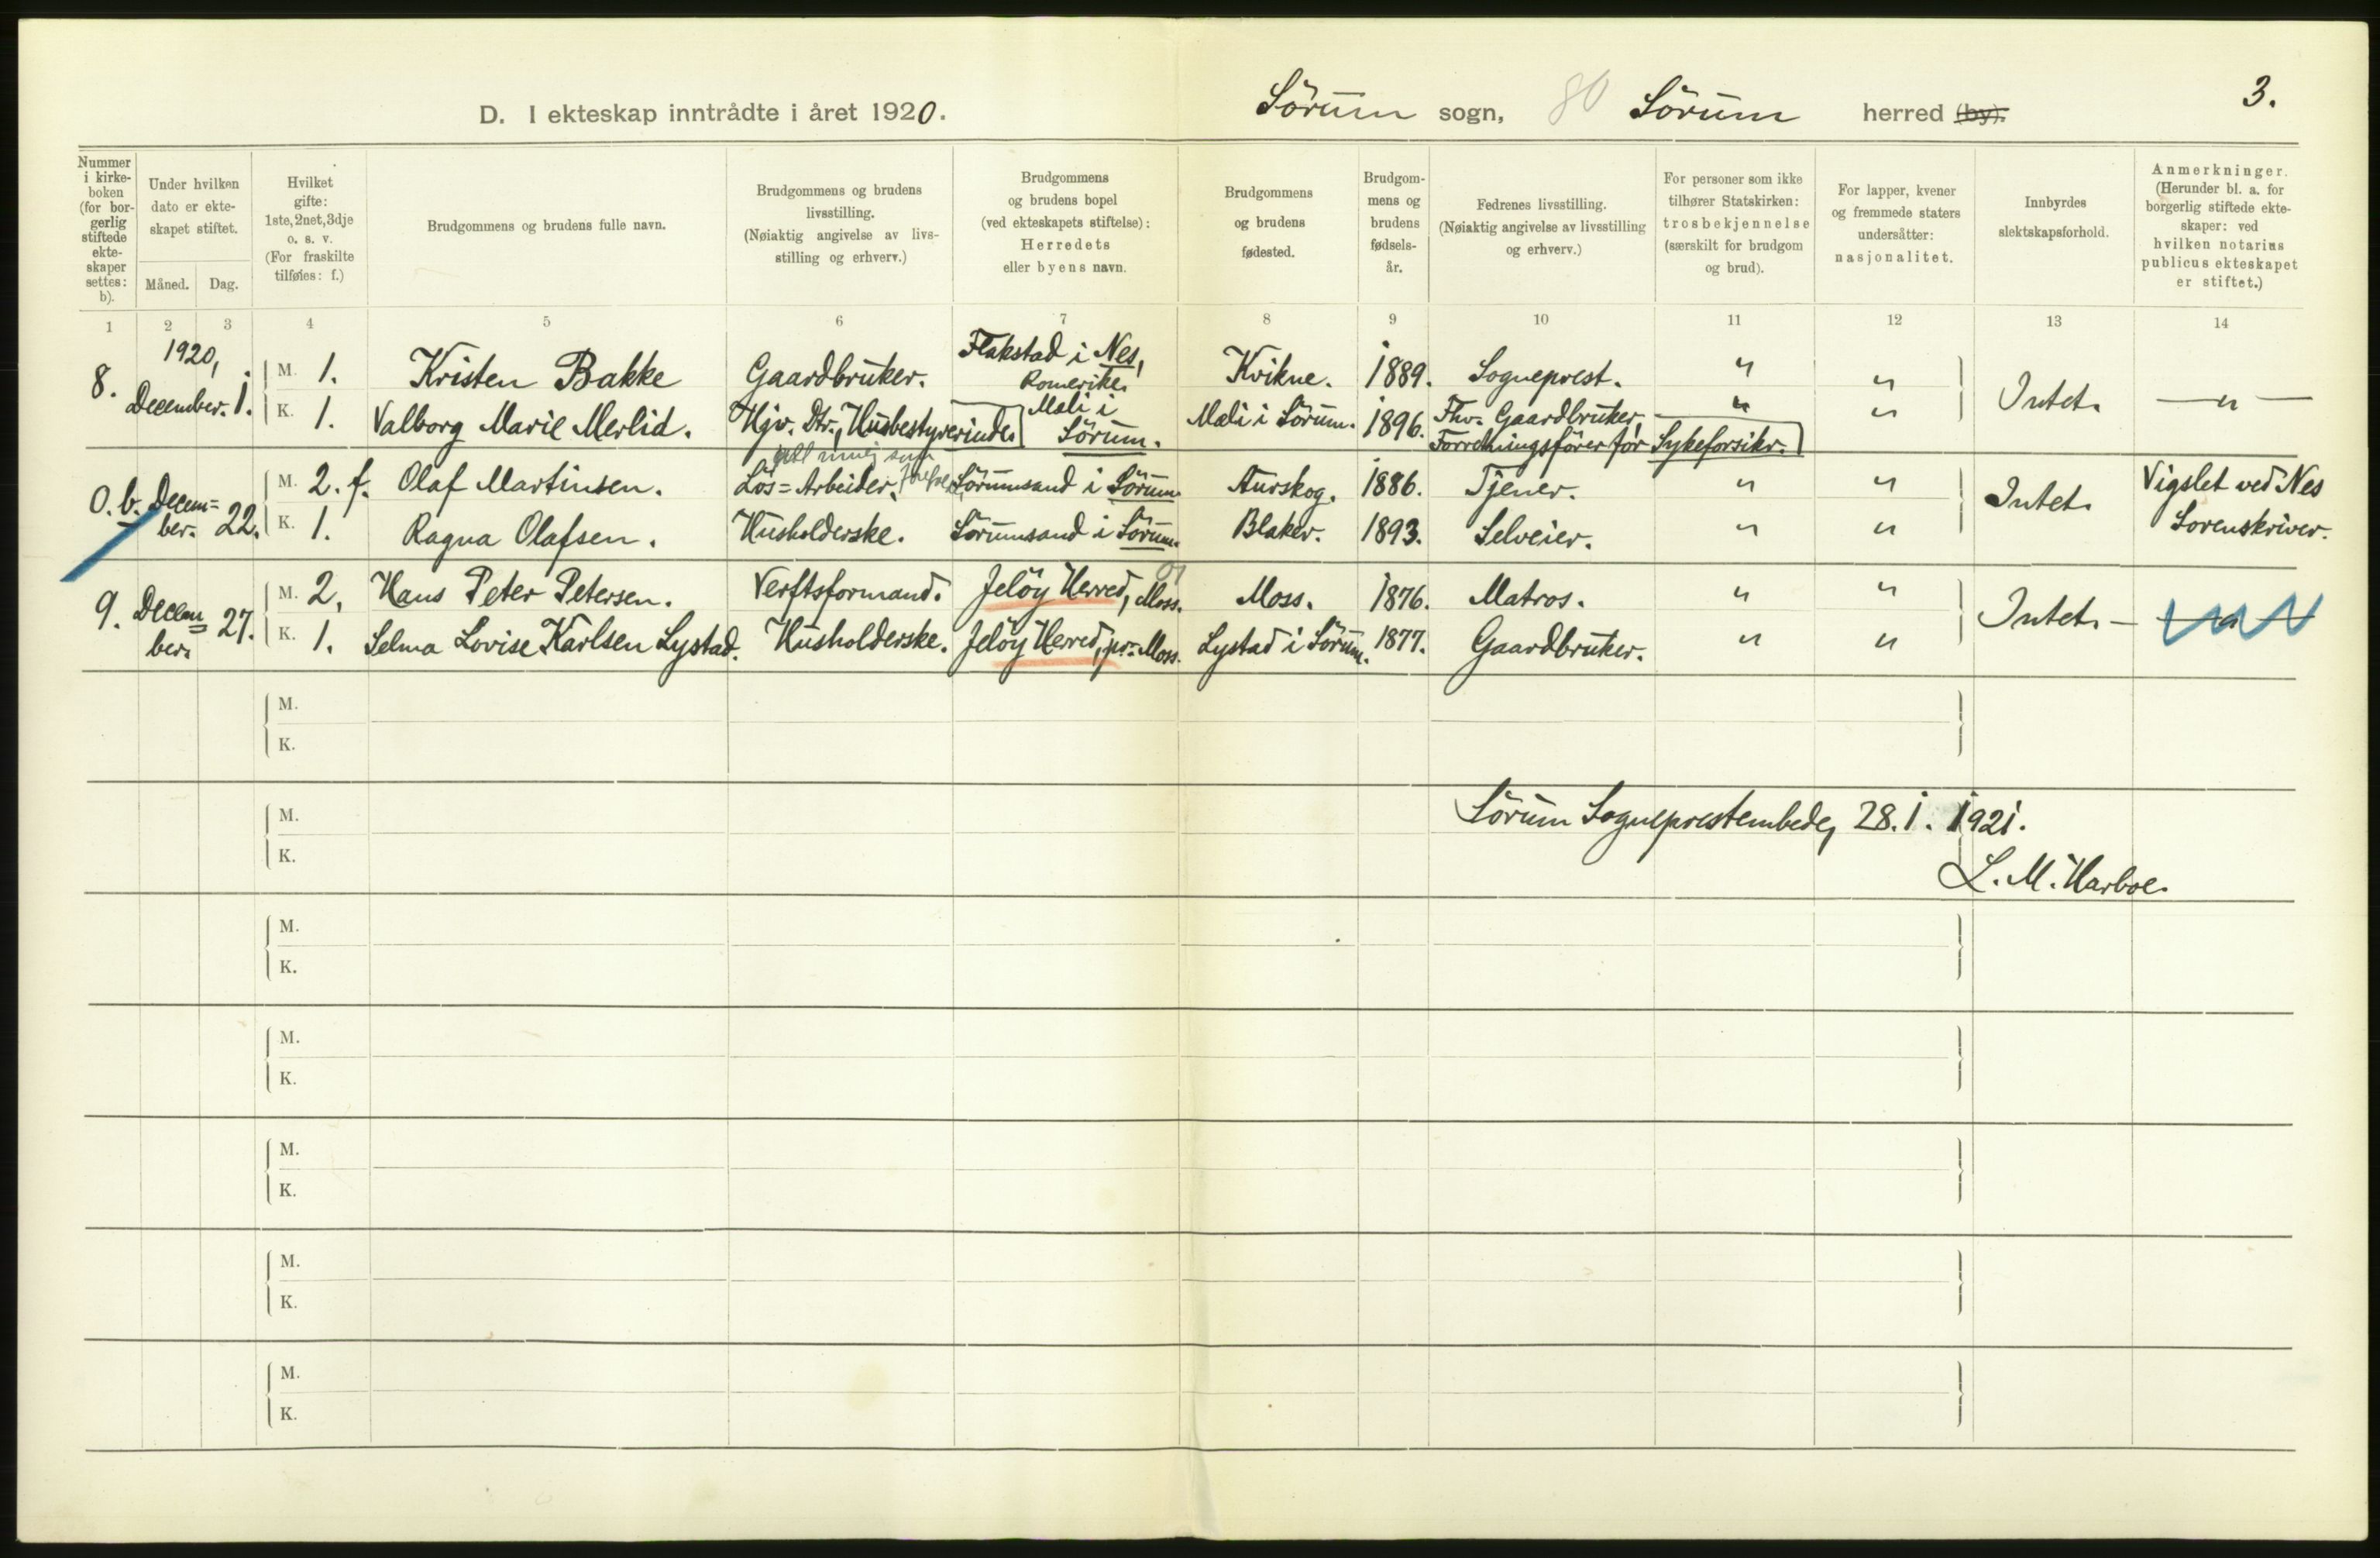 D. I ekteskap inntrådte i året 1920.
Sörum sogn, 80 Sörum herred (by).
3.
Nummer i kirke-boken (for bor-gerlig stiftede ekte-skaper settes: b).
Under hvilken dato er ekte-skapet stiftet.
Måned. Dag.
Hvilket gifte: 1ste, 2net, 3dje o. s. v. (For fraskilte tilføies: f.)
Brudgommens og brudens fulle navn.
Brudgommens og brudens livsstilling. (Nøiaktig angivelse av livs-stilling og erhverv.)
Brudgommens og brudens bopel (ved ekteskapets stiftelse): Herredets eller byens navn.
Brudgommens og brudens fødested.
Brudgom-mens og brudens fødsels-år.
Fedrenes livsstilling. (Nøiaktig angivelse av livsstilling og erhverv.)
For personer som ikke tilhører Statskirken: trosbekjennelse (særskilt for brudgom og brud).
For lapper, kvener og fremmede staters undersåtter: nasjonalitet.
Innbyrdes slektskapsforhold.
Anmerkninger. (Herunder bl. a. for borgerlig stiftede ekte-skaper: ved hvilken notarius publicus ekteskapet er stiftet.)
1 2 3 4 5 6 7 8 9 10 11 12 13 14
1920,
8. December. 1. M. 1. Kristen Bakke Gaardbruker. Flakstad i Nes, Romerike. Kvikne. 1889. Sogneprest. " " Intet. — " —
K. 1. Valborg Marie Merlid. Hjv. Dtr., Husbestyrerinde. Mæli i Sörum. Mæli i Sörum. 1896. Fhv. Gaardbruker, Forretningsfører for Sykeforsikr. " "
0. b. Decem=ber. 22. M. 2. f. Olaf Martinsen. Lös=Arbeider. Sörumsand i Sörum. Aurskog. 1886. Tjener. " " Intet. Vigslet ved Nes Sorenskriver.
K. 1. Ragna Olafsen. Husholderske. Sörumsand i Sörum. Blaker. 1893. Selveier. " "
9. Decem=ber. 27. M. 2. Hans Peter Petersen. Verftsformand. Jelöy Herred, Moss. Moss. 1876. Matros. " " Intet. — " —
K. 1. Selma Lovise Karlsen Lystad. Husholderske. Jelöy Herred, pr. Moss. Lystad i Sörum. 1877. Gaardbruker. " "
M.
K.
M.
K.
Sörum Sogneprestembede, 28. 1. 1921.
L. M. Harboe.
M.
K.
M.
K.
M.
K.
M.
K.
M.
K.